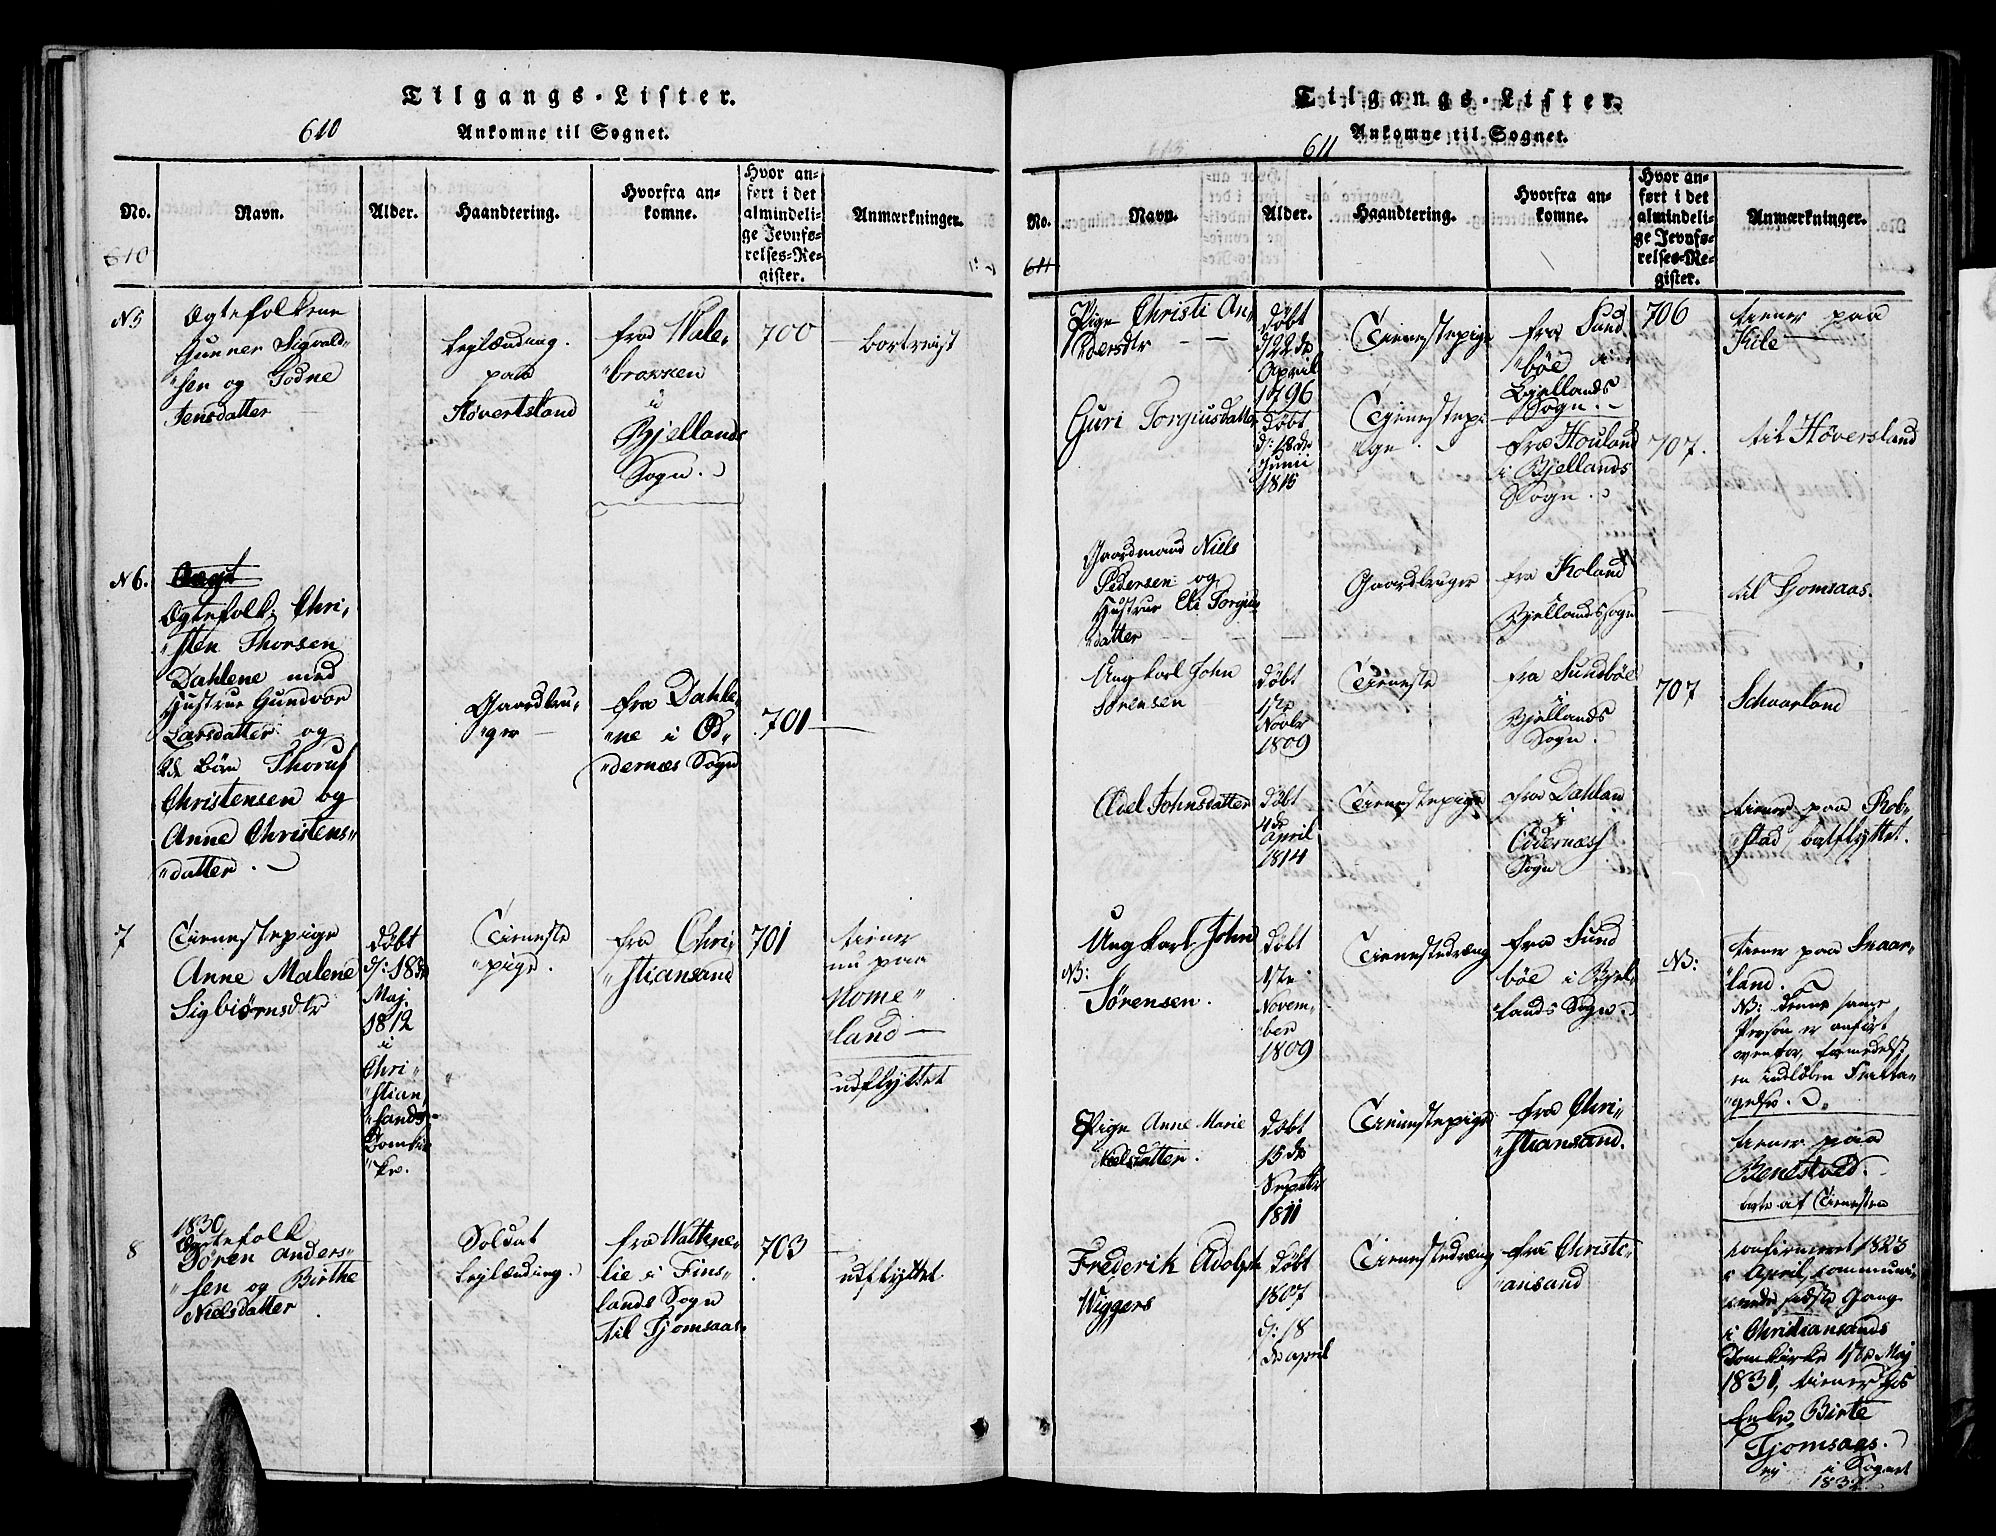 Tilgangs-Lister.
610
Ankomne til Sognet.
No.
Navn.
Alder.
Haandtering.
Hvorfra an-
komne.
Hvor an-
ført i det
almindeli-
ge Jevnfø-
relses-Re-
gister.
Anmærkninger.
610
N5
Ægtefolkene
Gunner Sigvald-
"sen og Godne
Jensdatter
Leylænding
paa
Høvertsland
fra Wale-
"brokken
i
Bjellands
Sogn.
700
bortreist
N6.
Ægtefolk: Chri-
"sten Thorsen
Dahlene med
Hustrue Gundvor
Larsdatter og
Børn Thorus
Christensen og
Anne Christens-
"datter.
Gaardbru-
"ger
fra Dahle-
"ne i Od-
"dernæs Sogn
701
7
Tienestepige
Anne Malene
Sigbiørnsdtr
døbt
d: 18de
Maj
1812
i
Chri-
"stian-
"sands
Domkir-
"ke.
Tieneste
"pige.
fra Chri-
"stiansand
701
tiener
nu paa
Home-
"land
udflyttet
8
1830
Ægtefolk
Søren Anders-
"sen og Birthe
Nielsdatter
Soldat
Leylænding.
fra Wattene-
lie i Fins-
lands Sogn
til Tjomsaas
703
udflyttet
Tilgangs-Lister.
611
Ankomne til Sognet.
No.
Navn.
Alder.
Haandtering.
Hvorfra an-
komne.
Hvor an-
ført i det
almindeli-
ge Jevnfø-
relses-Re-
gister.
Anmærkninger.
611
Pige Christi An-
"dersdtr
døbt
d 22de
April
1796
Tienestepige
fra Sund
"bøe i
Bjellands
Sogn.
706
tiener paa
Kile
Guri Torgiusdatter
døbt
d: 18de
Junii
1815
Tjenestepi
"ge.
fra Houland
i Bjellands
Sogn.
707.
til Høversland
Gaardmand Niels
Pedersen og
Hustrue Eli Torgius-
"datter
Gaardbruger
fra Roland
Bjellands sogn
til Tjomsaas.
Ungkarl John
Sørensen
døbt
1ste
Novbr
1809
Tieneste
fra Sundbøe
i
Bjellands
Sogn.
707
Schaarland
Axel Johnsdatter
døbt
4de
April
1814
Tienestepige
fra Dahlan
i
Oddernæss
Sogn
tiener paa Rob-
"stad
Ungkarl John
NB:
Sørensen.
døbt
1ste
Novem-
"ber
1809
Tienestedreng
fra Sund
bøe i Bjel-
lands Sogn.
NB:
tiener paa Snaar-
"land.
NB: denne samme
Person er anført
ovenfor, formedelst
en indløben Feilta-
"gelse.
Pige Anne Marie
Nielsdatter.
døbt
15de
Septbr
1811
Tienestepige
fra Chri-
"stiansand.
tiener paa
Benestvedt.
af Tienesten
Frederik Adolph
Wiggers
døbt
1807
d: 18
de april
Tienestedreng
fra Christi-
"ansand
confirmeret 1823
i April, communi-
cerede sidste Gang
i Christiansands
Domkirke 1ste Maj
1831, tiener hos
Enke Birte
Tjomsaas.
ej i Sognet